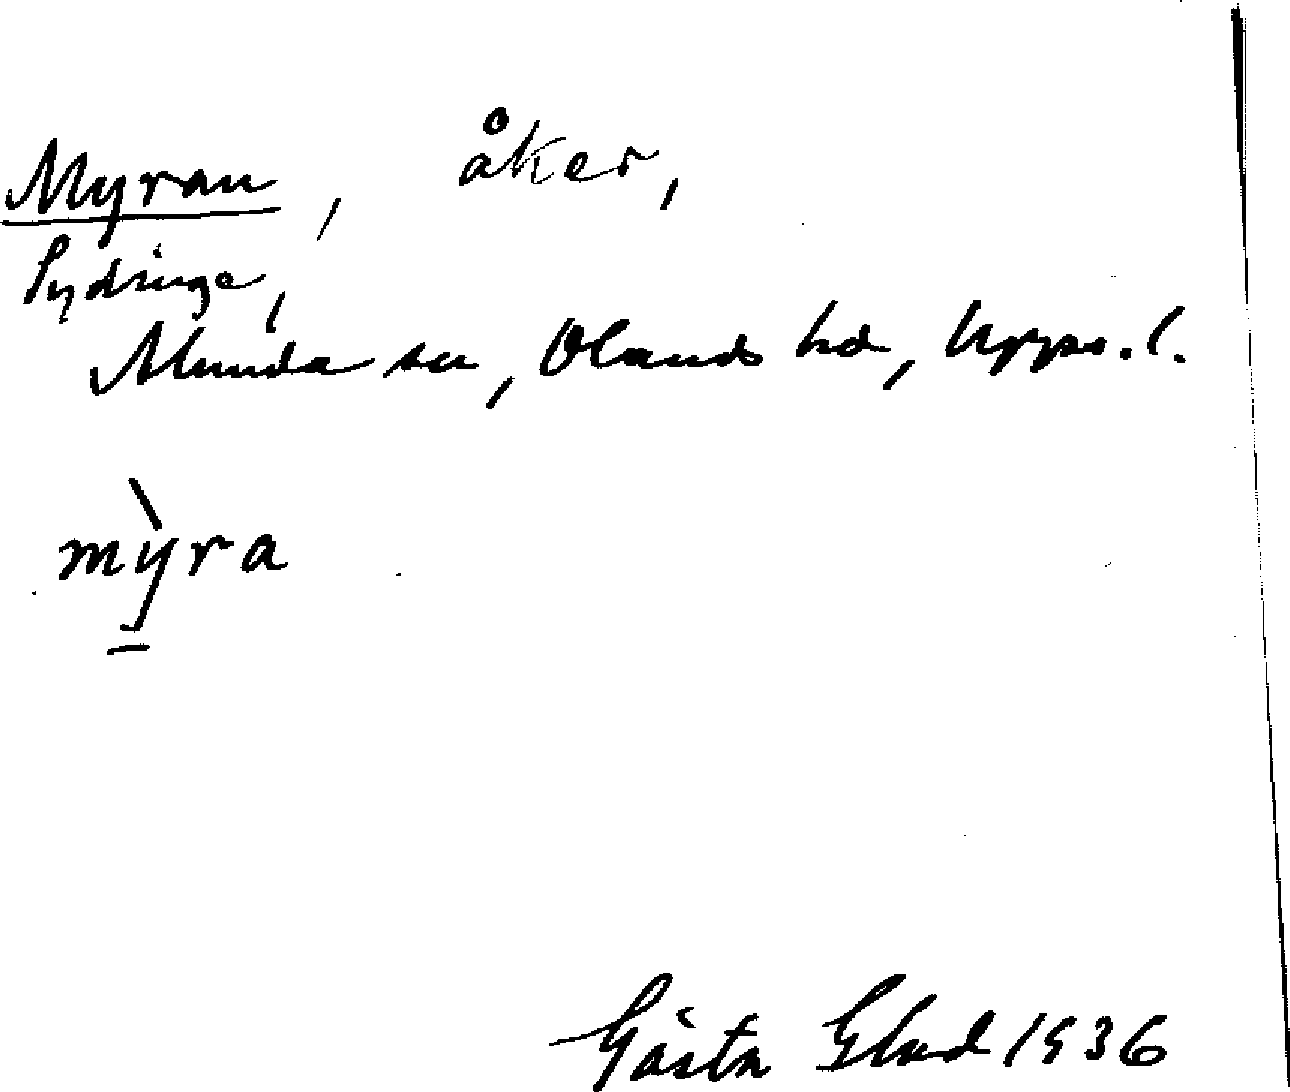 Myran, åker,
Sydinge,
Almunda sn, Olands hd, Upps. l.
mỳra
Gösta Glad 1936